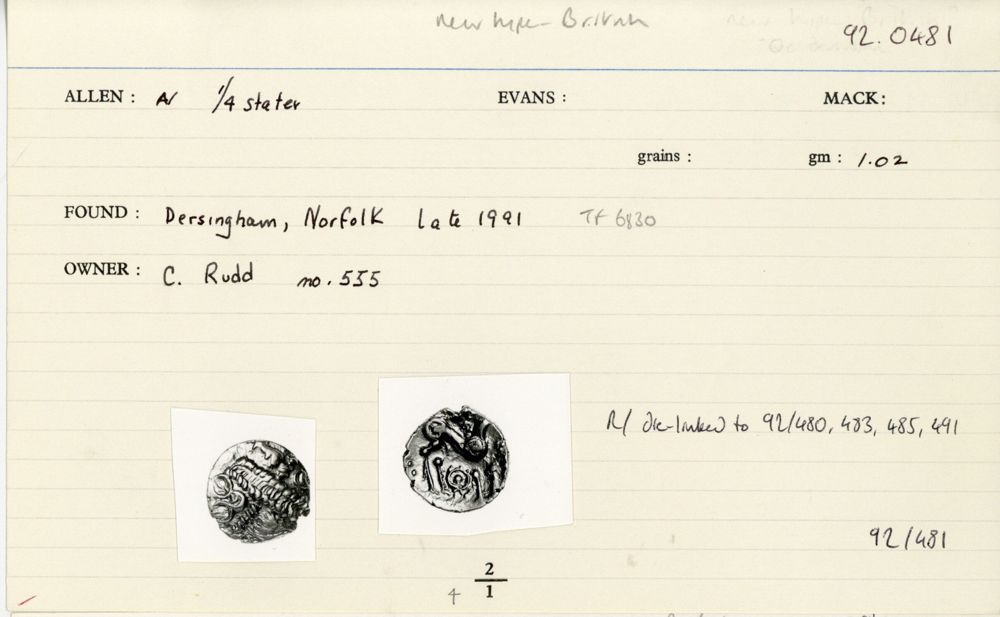 new type - British
92.0481
ALLEN : AV 1/4 stater EVANS : MACK:
grains : gm : 1.02
FOUND : Dersingham, Norfolk late 1991 TF 6830
OWNER : C. Rudd no. 555
R/ die-linked to 92/480, 483, 485, 491
92/481
4 2/1